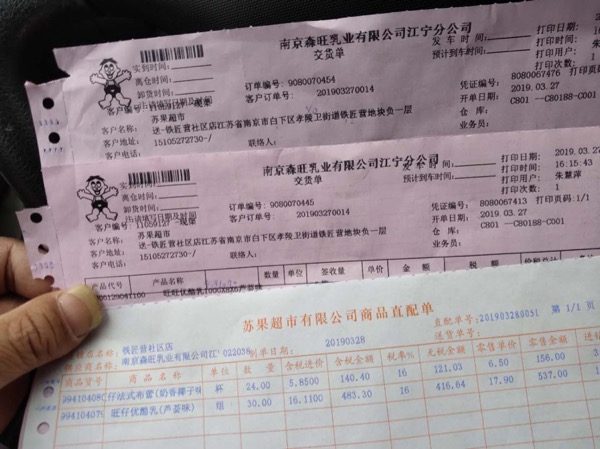 南京森旺乳业有限公司江宁分公司
交货单
发 车 时 间:
预计到车时间:
打印日期:
打印时间: 16
打印用户: 朱
打印次数: 1
实到时间:
离仓时间:
卸货时间:
注:请填写日期及时间
订单编号: 9080070454
客户订单: 201903270014
凭证编号: 8080067476
打印页码:
开单日期: 2019.03.27
仓 库: C801 --C80188-C001
业务员:
客户名称: 苏果超市
客户地址: 送-铁匠营社区店江苏省南京市白下区孝陵卫街道铁匠营地块负一层
客户电话: 15105272730-/
联络人:
南京森旺乳业有限公司江宁分公司
交货单
发 车 时 间:
预计到车时间:
打印日期: 2019.03.27
打印时间: 16:15:43
打印用户: 朱慧萍
打印次数: 1
实到时间:
离仓时间:
卸货时间:
注:请填写日期及时间
订单编号: 9080070445
客户订单: 201903270014
凭证编号: 8080067413
打印页码: 1/1
开单日期: 2019.03.27
仓 库: C801 --C80188-C001
业务员:
客户编号: 11059127
客户名称: 苏果超市
客户地址: 送-铁匠营社区店江苏省南京市白下区孝陵卫街道铁匠营地块负一层
客户电话: 15105272730-/
联络人:
产品代号 产品名称 数量 单位 签收量 单价 金 额
苏果超市有限公司商品直配单
铁匠营社区店
直配单号: 201903280051 第 1/1 页
供应商名: 南京森旺乳业有限公司江' 022036
制单日期: 20190328
送货单号:
商品货号 商 品 名 称 单位 数 量 含税进价 含税金额 税率% 无税金额 零售单价 零售金额
994104080 仔法式布蕾(奶香椰子味 杯 24.00 5.8500 140.40 16 121.03 6.50 156.00
994104079 旺仔优酪乳(芦荟味) 组 30.00 16.1100 483.30 16 416.64 17.90 537.00